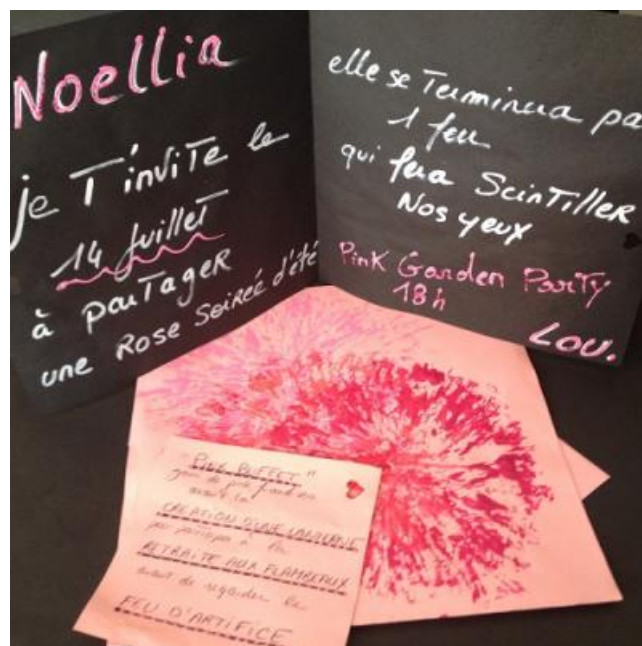 Noellia
je T'inviTe le
14 Juillet
à parTager
une Rose Soireé d'été
elle se Terminera pa
1 feu
qui fera ScinTilleR
Nos yeux
Pink Garden ParTy
18h
Lou.
"PINK BUFFET"
avant la
CREATION D'UNE LANTERNE
participer à la
RETRAITE AUX FLAMBEAUX
avant de regarder le
FEU D'ARTIFICE